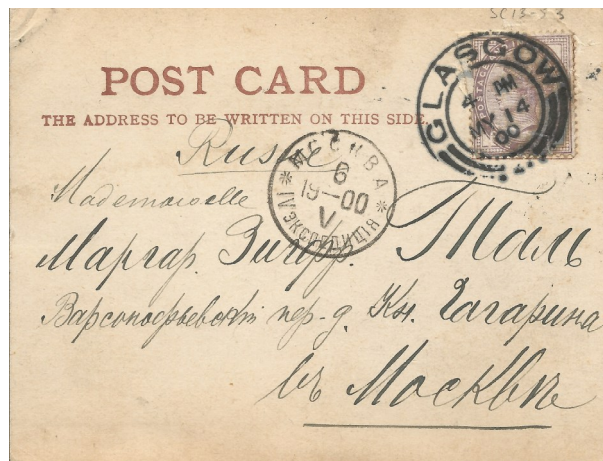 SC13-5 3
POST CARD
THE ADDRESS TO BE WRITTEN ON THIS SIDE.
GLASGOW
4 PM
MY 14
00
POSTAGE
Russie
МОСКВА
6
19-00
V
ЭКСПЕДИЦІЯ
Mademoiselle
Маргар. Таль
Варсонофьевскій пер. д. Кн. Гагарина
въ Москвѣ